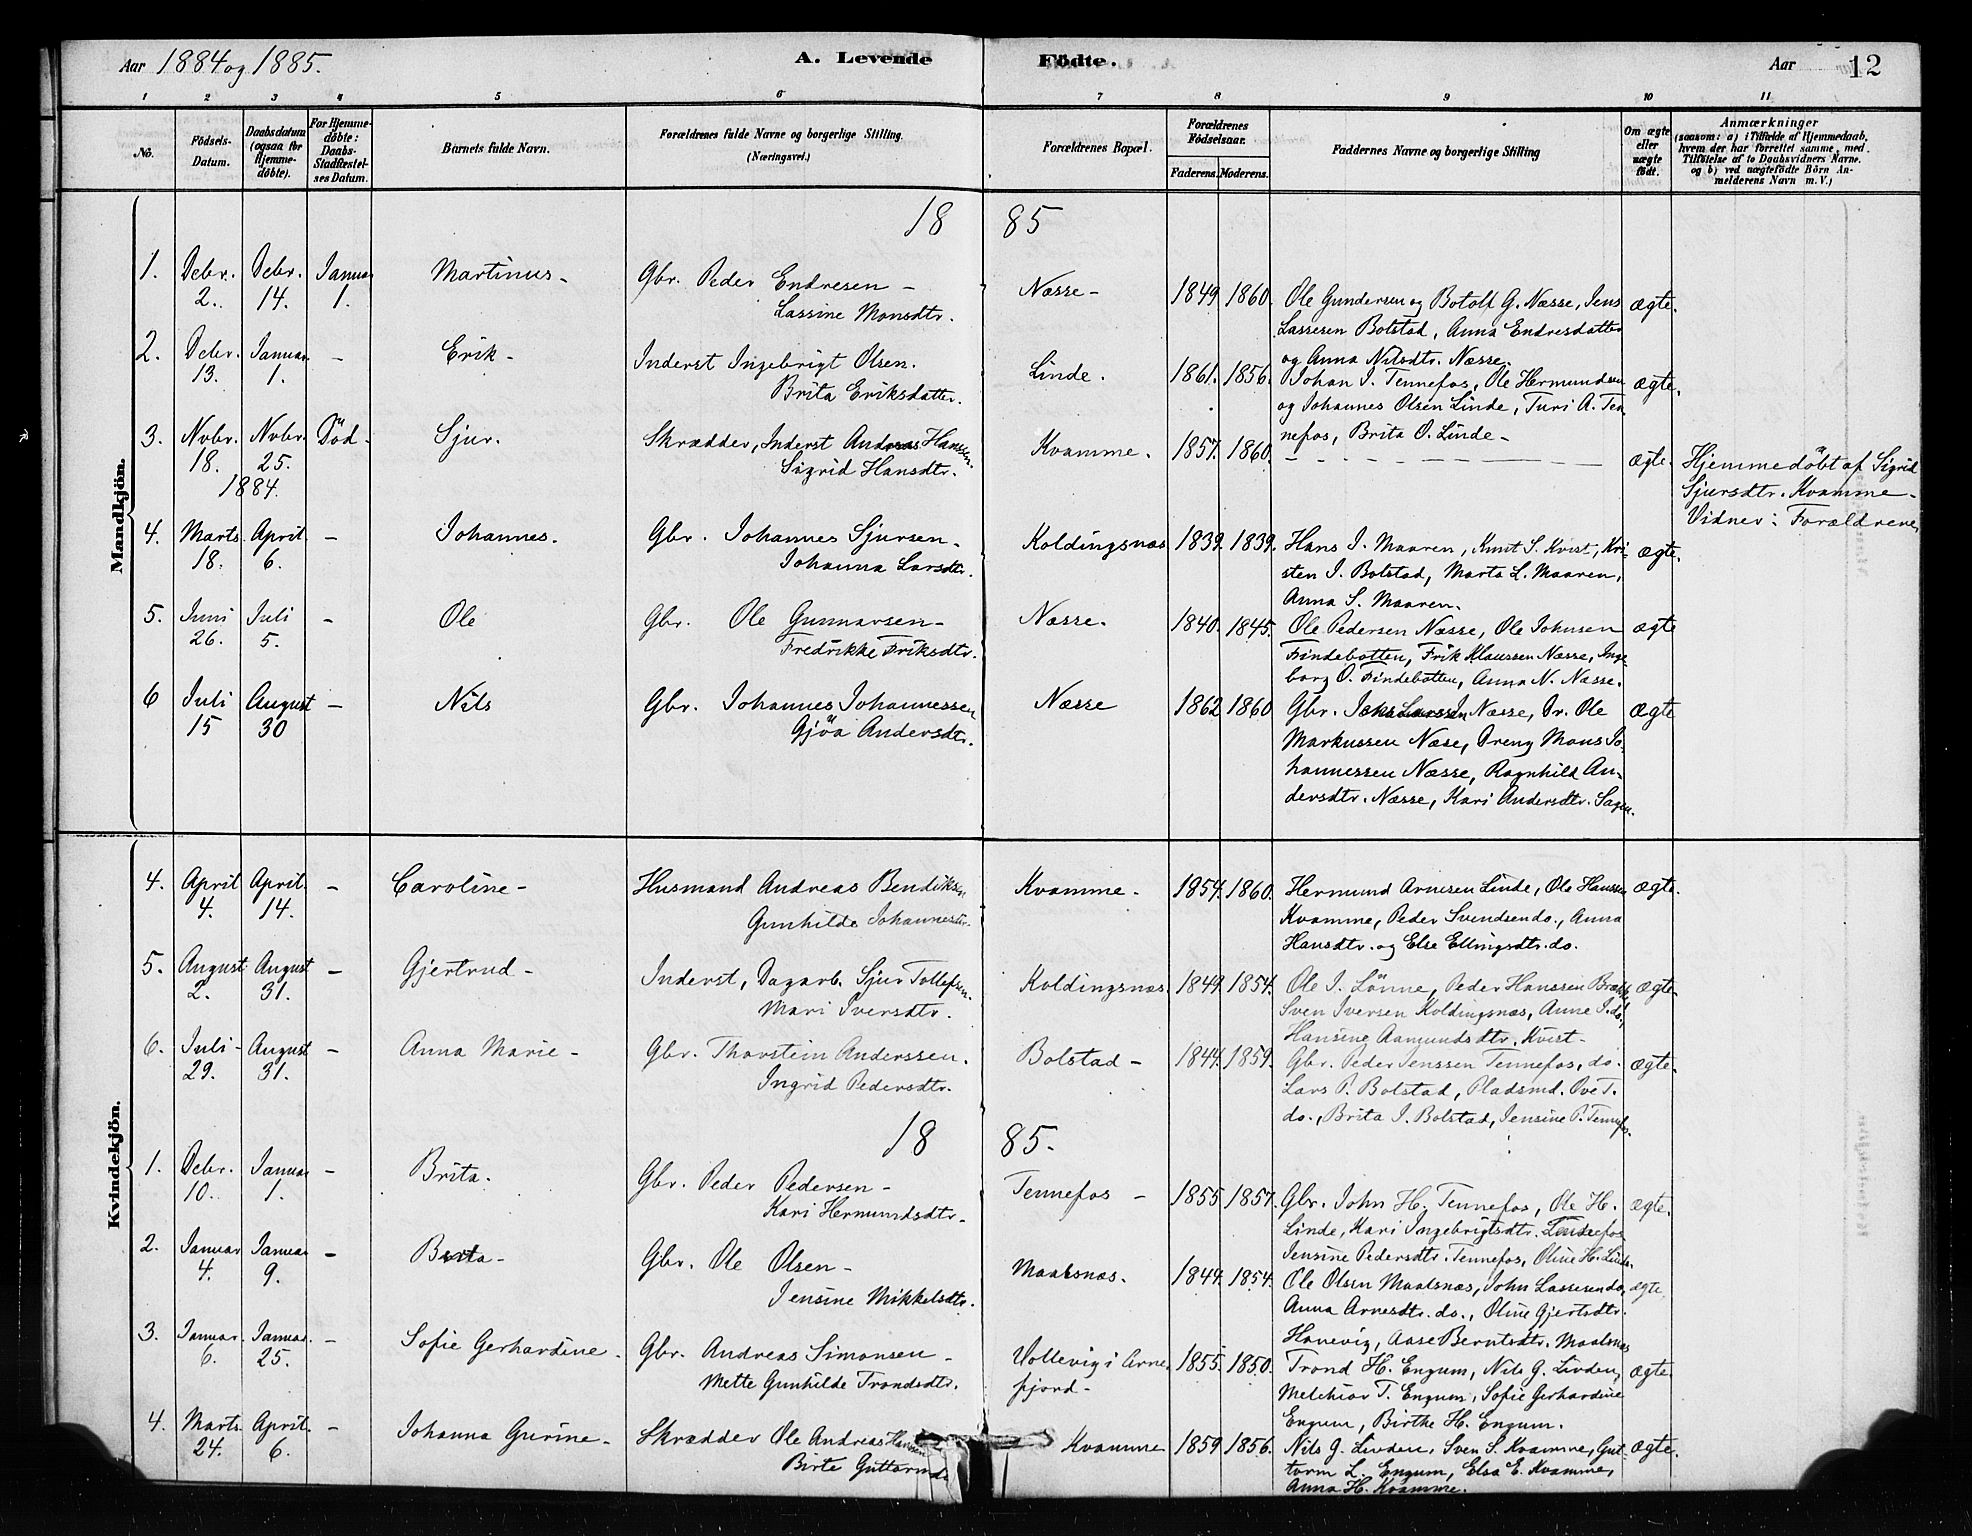 Aar 1884 og 1885. A. Levende Fødte. Aar 12
1 2 3 4 5 6 7 8 9 10 11
No. Födsels-Datum. Daabsdatum (ogsaa for Hjemme-döbte). For Hjemme-döbte: Daabs-Stadfæstel-ses Datum. Barnets fulde Navn. Forældrenes fulde Navne og borgerlige Stilling. (Næringsvei.) Forældrenes Bopæl. Forældrenes Födselsaar. Faderens. Moderens. Faddernes Navne og borgerlige Stilling Om ægte eller uægte födt. Anmærkninger (saasom: a) i Tilfælde af Hjemmedaab, hvem der har forrettet samme, med Tilföielse af to Daabsvidners Navne. og b) ved uægtefödte Börn An-melderens Navn m. V.)
Mandkjön.
18 85
1. Debr. 2. Debr. 14. Januar 1. Martinus - Gbr. Peder Endresen - Næsse - 1849. 1860. Ole Gundersen og Botolf G. Næsse, Jens ægte.
Lassine Monsdtr. Lassesen Bolstad, Anna Endresdatter
og Anna Nilsdtr. Næsse.
2. Debr. 13. Januar 1. - Erik - Inderst Ingebrigt Olsen. Linde. 1861. 1856. Johan J. Tennefos, Ole Hermundsen ægte.
Brita Eriksdatter. og Johannes Olsen Linde, Turi A. Ten
nefos, Brita O. Linde -
3. Novbr. 18. Novbr. 25. 1884. Död - Sjur. Skrædder, Inderst Andreas Hanssen. Kvamme. 1857. 1860. - - - ægte. Hjemmedöbt af Sigrid
Sigrid Hansdtr. Sjursdtr. Kvamme -
Vidner: Forældrene
4. Marts 18. April 6. - Johannes. Gbr. Johannes Sjursen - Koldingsnæs 1839. 1839. Hans J. Maaren, Knut S. Kvist, Kri- ægte.
Johanna Larsdtr. sten J. Bolstad, Marta L. Maaren,
Anna S. Maaren.
5. Juni 26. Juli 5. - Ole Gbr. Ole Gunnarsen - Næsse. 1840. 1845. Ole Pedersen Næsse, Ole Johnsen ægte
Fredrikke Friksdtr. Findebotten, Frik Klaussen Næsse, Inge
borg O. Findebotten, Anna N. Næsse.
6 Juli 15 August 30 - Nils Gbr. Johannes Johannessen Næsse 1862 1860 Gbr. Næsse, Dr. Ole ægte
Gjöa Andersdtr. Markussen Næse, Dreng Mons Jo-
hannessen Næsse, Ragnhild An-
dersdtr. Næsse, Kari Andersdtr. Sagen.
Kvindekjön.
4. April 4. April 14. - Caroline - Husmand Andreas Bendiksen Kvamme. 1854. 1860. Hermund Arnesen Linde, Ole Hanssen ægte.
Gunhilde Johannesdtr. Kvamme, Peder Svendsen do., Anna
Hansdtr. og Else Ellingsdtr. do.
5. August 2. August 31. - Gjertrud - Inderst, Dagarb. Sjur Tollefsen. Koldingsnæs. 1849. 1854. Ole J. Lönne, Peder Hanssen ægte.
Mari Iversdtr. Sven Iversen Koldingsnæs, Anne J. do.,
Hansine Aamundsdtr. Kvist -
6. Juli - 29. August 31. - Anna Marie - Gbr. Thorstein Anderssen. Bolstad - 1844. 1859. Gbr. Peder Jenssen Tennefos, do. ægte.
Ingrid Pedersdtr. Lars P. Bolstad, Pladsmd. Ove T.
do., Brita J. Bolstad, Jensine P. Tennefos.
18 85.
1. Debr. 10. Januar 1. - Brita. Gbr. Peder Pedersen - Tennefos - 1855. 1857. Gbr. John H. Tennefos, Ole H. ægte.
Kari Hermundsdtr. Linde, Kari Ingebrigtsdtr. Tennefos
Jensine Pedersdtr. Tennefos, Oline H. Linde.
2. Januar 4. Januar 9. - Brita - Gbr. Ole Olsen - Maalsnæs. 1844. 1854. Ole Olsen Maalsnæs, John Lassesen do. ægte
Jensine Mikkelsdtr. Anna Arnesdtr. do., Oline Gjertsdtr.
Hanevig, Aase Berntsdtr. Maalsnæs
3. Januar 6. Januar 25. - Sofie Gerhardine - Gbr. Andreas Simonsen - Vollevig i Arne 1855. 1850. Trond H. Engum, Nils G. Linden, ægte.
Mette Gunhilde Trondsdtr. fjord - Melchior T. Engum, Sofie Gerhardine
Engum, Birthe H. Engum.
4. Marts 24. April 6. - Johanna Gurine - Skrædder Ole Andreas Hansen Kvamme 1859. 1856. Nils G. Linden, Sven S. Kvamme, Gut- ægte.
Birte Guttormsdtr torm L. Engum, Elsa E. Kvamme,
Anna H. Kvamme.